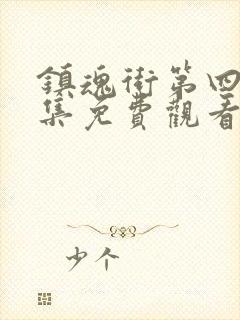 鎮魂街第四
集免費觀看
少个